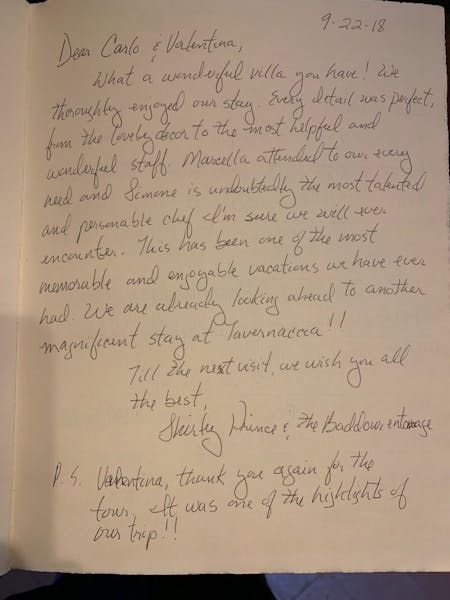 9-22-18
Dear Carlo & Valentina,
What a wonderful villa you have! We
thoroughly enjoyed our stay. Every detail was perfect,
from the lovely decor to the most helpful and
wonderful staff. Marcella attended to our every
need and Simone is undoubtedly the most talented
and personable chef I'm sure we will ever
encounter. This has been one of the most
memorable and enjoyable vacations we have ever
had. We are already looking ahead to another
magnificent stay at Tavernaccia!!
Till the next visit, we wish you all
the best,
Shirley Prince & the entourage
P.S. Valentina, thank you again for the
tour. It was one of the highlights of
our trip!!